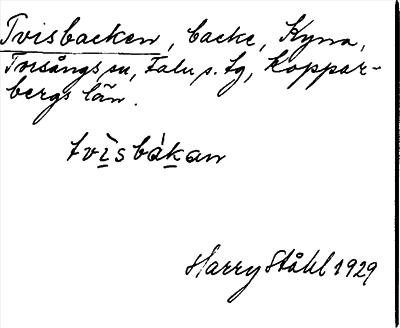 Tvisbacken, backe, Kyna,
Torsångs sn, Falu s. tg, Koppar-
bergs län.
tvìsbákan
Harry Ståhl 1929